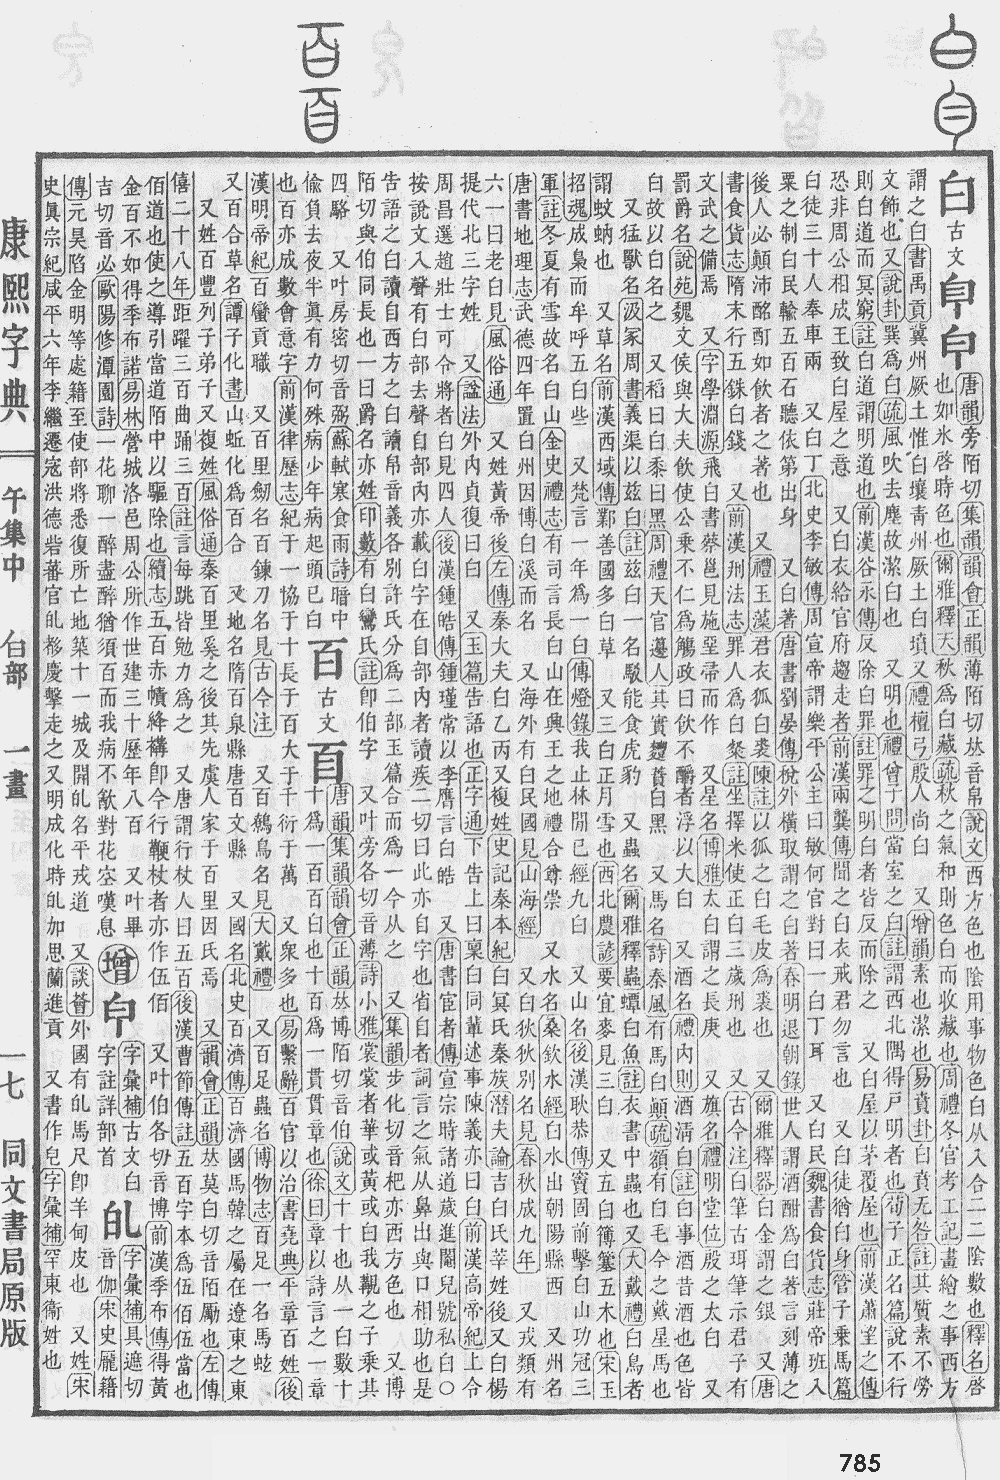 白 古文 𦣺 㿟
唐韻旁陌切集韻韻會正韻薄陌切𠀤音帛說文西方色也陰用事物色白从入合二二陰數也釋名啓
也如氷啓時色也爾雅釋天秋爲白藏疏秋之氣和則色白而收藏也周禮冬官考工記畫繢之事西方
謂之白書禹貢冀州厥土惟白壤靑州厥土白墳 又禮檀弓殷人尚白 又增韻素也潔也易賁卦白賁无咎註其質素不勞
文飾也又說卦巽爲白疏風吹去塵故潔白也 又明也禮曾子問當室之白註謂西北隅得戸明者也荀子正名篇說不行
則白道而冥窮註白道謂明道也前漢谷永傳反除白罪註罪之明白者皆反而除之 又白屋以茅覆屋也前漢蕭望之傳
恐非周公相成王致白屋之意 又白衣給官府趨走者前漢兩龔傳聞之白衣戒君勿言也 又白徒猶白身管子乗馬篇
白徒三十人奉車兩 又白丁北史李敏傳周宣帝謂樂平公主曰敏何官對曰一白丁耳 又白民魏書食貨志莊帝班入
粟之制白民輸五百石聽依第出身 又白著唐書劉晏傳稅外橫取謂之白著春明退朝錄世人謂酒酣爲白著言刻薄之
後人必顚沛酩酊如飮者之著也 又禮玉藻君衣狐白裘陳註以狐之白毛皮爲裘也 又爾雅釋器白金謂之銀 又唐
書食貨志隋末行五銖白錢 又前漢刑法志罪人爲白粲註坐擇米使正白三歲刑也 又古今注白筆古珥筆示君子有
文武之備焉 又字學淵源飛白書蔡邕見施堊帚而作 又星名博雅太白謂之長庚 又旗名禮明堂位殷之太白 又
罰爵名說苑魏文侯與大夫飮使公乗不仁爲觴政曰飮不釂者浮以大白 又酒名禮內則酒淸白註白事酒昔酒也色皆
白故以白名之 又稻曰白黍曰黑周禮天官籩人其實麷蕡白黑 又馬名詩秦風有馬白顚疏額有白毛今之戴星馬也
又猛獸名汲冢周書義渠以兹白註兹白一名駮能食虎豹 又蟲名爾雅釋蟲蟫白魚註衣書中蟲也又大戴禮白鳥者
謂蚊蚋也 又草名前漢西域傳鄯善國多白草 又三白正月雪也西北農諺要宜麥見三白 又五白簙簺五木也宋玉
招魂成梟而牟呼五白些 又梵言一年爲一白傳燈錄我止林閒已經九白 又山名後漢耿恭傳竇固前擊白山功冠三
軍註冬夏有雪故名白山金史禮志有司言長白山在興王之地禮合尊崇 又水名桑欽水經白水出朝陽縣西 又州名
唐書地理志武德四年置白州因博白溪而名 又海外有白民國見山海經 又白狄狄別名見春秋成九年 又戎類有
六一曰老白見風俗通 又姓黃帝後左傳秦大夫白乙丙又複姓史記秦本紀白冥氏秦族潛夫論吉白氏莘姓後又白楊
提代北三字姓 又諡法外內貞復曰白 又玉篇告語也正字通下告上曰稟白同輩述事陳義亦曰白前漢高帝紀上令
周昌選趙壯士可令將者白見四人後漢鍾皓傳鍾瑾常以李膺言白皓 又唐書宦者傳宣宗時諸道歲進閹兒號私白○
按說文入聲有白部去聲自部內亦載白字在自部內者讀疾二切曰此亦自字也省自者詞言之氣从鼻出與口相助也是
告語之白讀自西方之白讀帛音義各別許氏分爲二部玉篇合而爲一今从之 又集韻步化切音杷亦西方色也 又博
陌切與伯同長也一曰爵名亦姓印藪有白鸞氏註卽伯字 又叶旁各切音薄詩小雅裳裳者華或黃或白我覯之子乗其
四駱 又叶房密切音弼蘇軾寒食雨詩暗中
偷負去夜半眞有力何殊病少年病起頭已白
百 古文 𦣻
唐韻集韻韻會正韻𠀤博陌切音伯說文十十也从一白數十
十爲一百百白也十百爲一貫貫章也徐曰章以詩言之一章
也百亦成數會意字前漢律歷志紀于一協于十長于百大于千衍于萬 又衆多也易繫辭百官以治書堯典平章百姓後
漢明帝紀百蠻貢職 又百里劒名百鍊刀名見古今注 又百鷯鳥名見大戴禮 又百足蟲名博物志百足一名馬蚿
又百合草名譚子化書山蚯化爲百合 又地名隋百泉縣唐百丈縣 又國名北史百濟傳百濟國馬韓之屬在遼東之東
又姓百豐列子弟子又複姓風俗通秦百里奚之後其先虞人家于百里因氏焉 又韻會正韻𠀤莫白切音陌勵也左傳
僖二十八年距躍三百曲踊三百註言每跳皆勉力爲之 又唐謂行杖人曰五百後漢曹節傳註五百字本爲伍伯伍當也
伯道也使之導引當道陌中以驅除也續志五百赤幘絳褠卽今行鞭杖者亦作伍佰 又叶伯各切音博前漢季布傳得黃
金百不如得季布諾易林營城洛邑周公所作世建三十歷年八百 又叶畢
吉切音必歐陽修潭園詩一花聊一醉盡醉猶須百而我病不飮對花空嘆息
增 𤼽
字彙補古文白
字註詳部首
癿
字彙補具遮切
音伽宋史龎籍
傳元昊陷金明等處籍至使部將悉復所亡地築十一城及開癿名平戎道 又談薈外國有癿馬尺卽羊甸皮也 又姓宋
史眞宗紀咸平六年李繼遷寇洪德砦蕃官癿𣏌慶擊走之又明成化時癿加思蘭進貢 又書作皀字彙補罕東衞姓也
康熙字典 午集中 白部 一畫 一七 同文書局原版
785